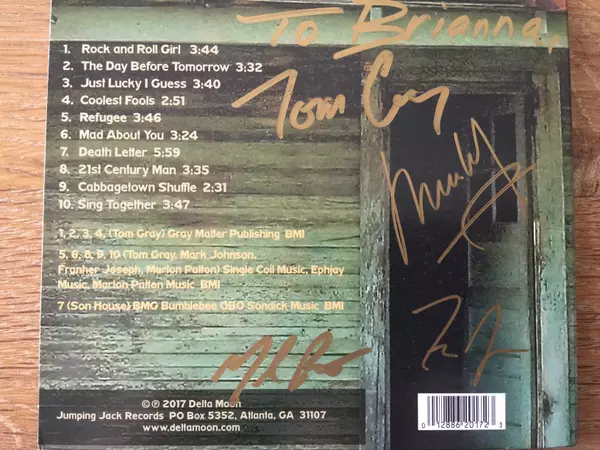 To Brianna,
1. Rock and Roll Girl 3:44
2. The Day Before Tomorrow 3:32
3. Just Lucky I Guess 3:40
4. Coolest Fools 2:51
5. Refugee 3:46
6. Mad About You 3:24
7. Death Letter 5:59
8. 21st Century Man 3:35
9. Cabbagetown Shuffle 2:31
10. Sing Together 3:47
Tom Gray
1, 2, 3, 4, (Tom Gray) Gray Matter Publishing BMI
5, 6, 8, 9, 10 (Tom Gray, Mark Johnson,
Franher Joseph, Marlon Patton) Single Coil Music, Ephjay
Music, Marlon Patton Music BMI
7 (Son House) BMG Bumblebee OBO Sondick Music BMI
©℗ 2017 Delta Moon
Jumping Jack Records PO Box 5352, Atlanta, GA 31107
www.deltamoon.com
0 12886 20172 3